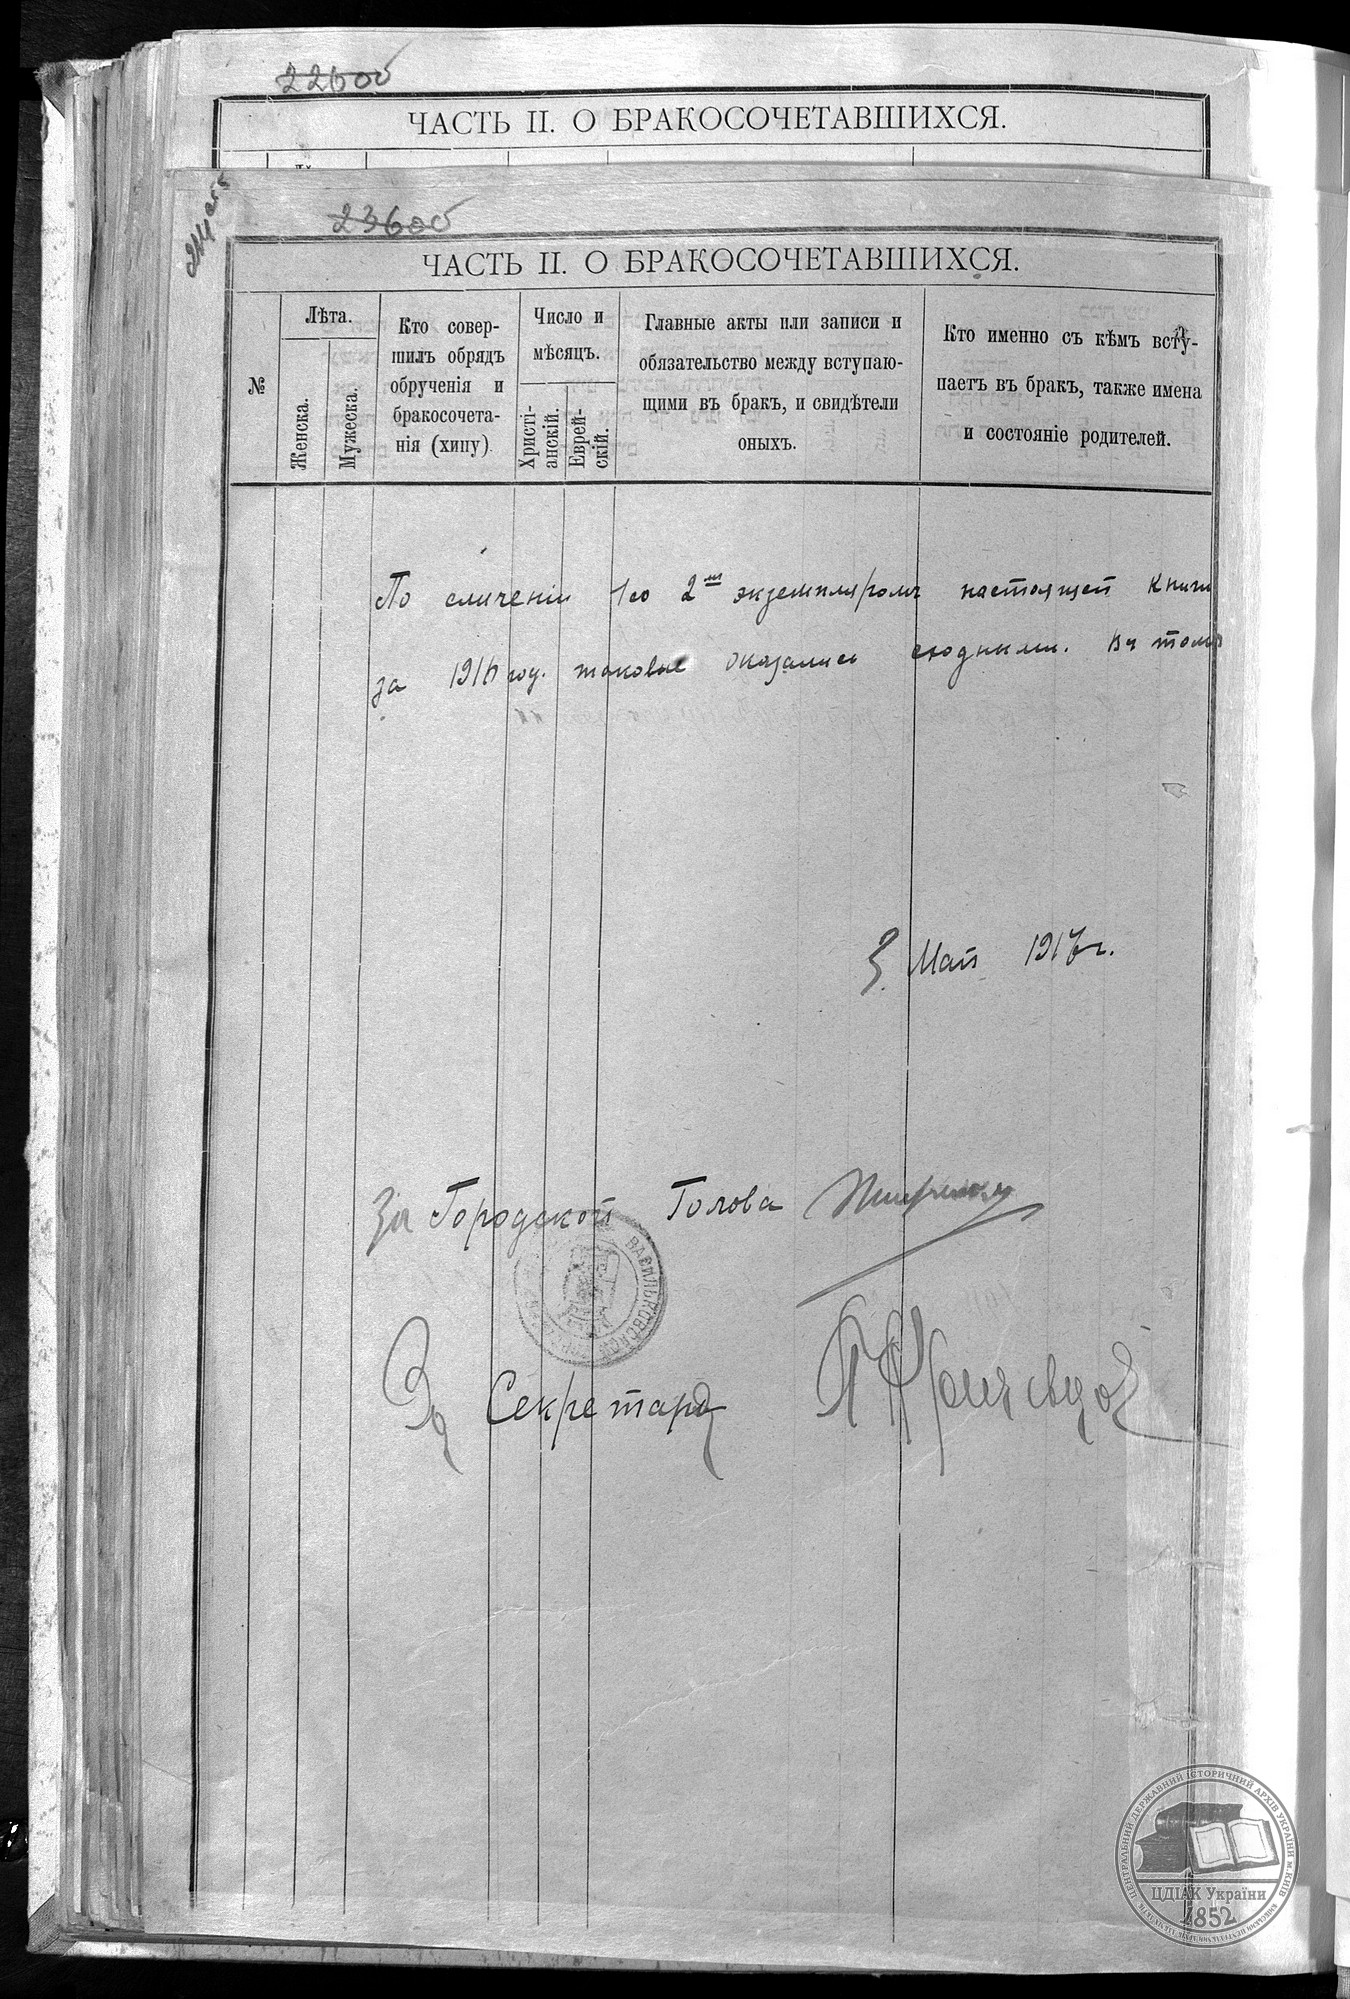 22600
ЧАСТЬ II. О БРАКОСОЧЕТАВШИХСЯ.
23600
ЧАСТЬ II. О БРАКОСОЧЕТАВШИХСЯ.
№
Лѣта.
Женска.
Мужеска.
Кто совер-
шилъ обрядъ
обрученія и
бракосочета-
нія (хипу)
Число и
мѣсяцъ.
Христі-
анскій.
Еврей-
скій.
Главные акты или записи и
обязательство между вступаю-
щими въ бракъ, и свидѣтели
оныхъ.
Кто именно съ кѣмъ всту-
паетъ въ бракъ, также имена
и состояніе родителей.
По сличеніи 1го 2мъ экземпляромъ настоящей книги
за 1916 год. таковые оказались сходными. въ томъ
3 Мая 1917 г.
За Городской Голова
ВАСИЛЬКОВСКАЯ
За Секретаря
ЦЕНТРАЛЬНИЙ ДЕРЖАВНИЙ ІСТОРИЧНИЙ АРХІВ УКРАЇНИ М. КИЇВ
ЦДІАК України
1852